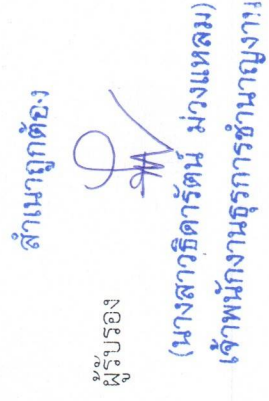 สำเนาถูกต้อง
ผู้รับรอง
(นางสาวธิดารัตน์ ม่วงแหลม)
เจ้าพนักงานธุรการชำนาญงาน